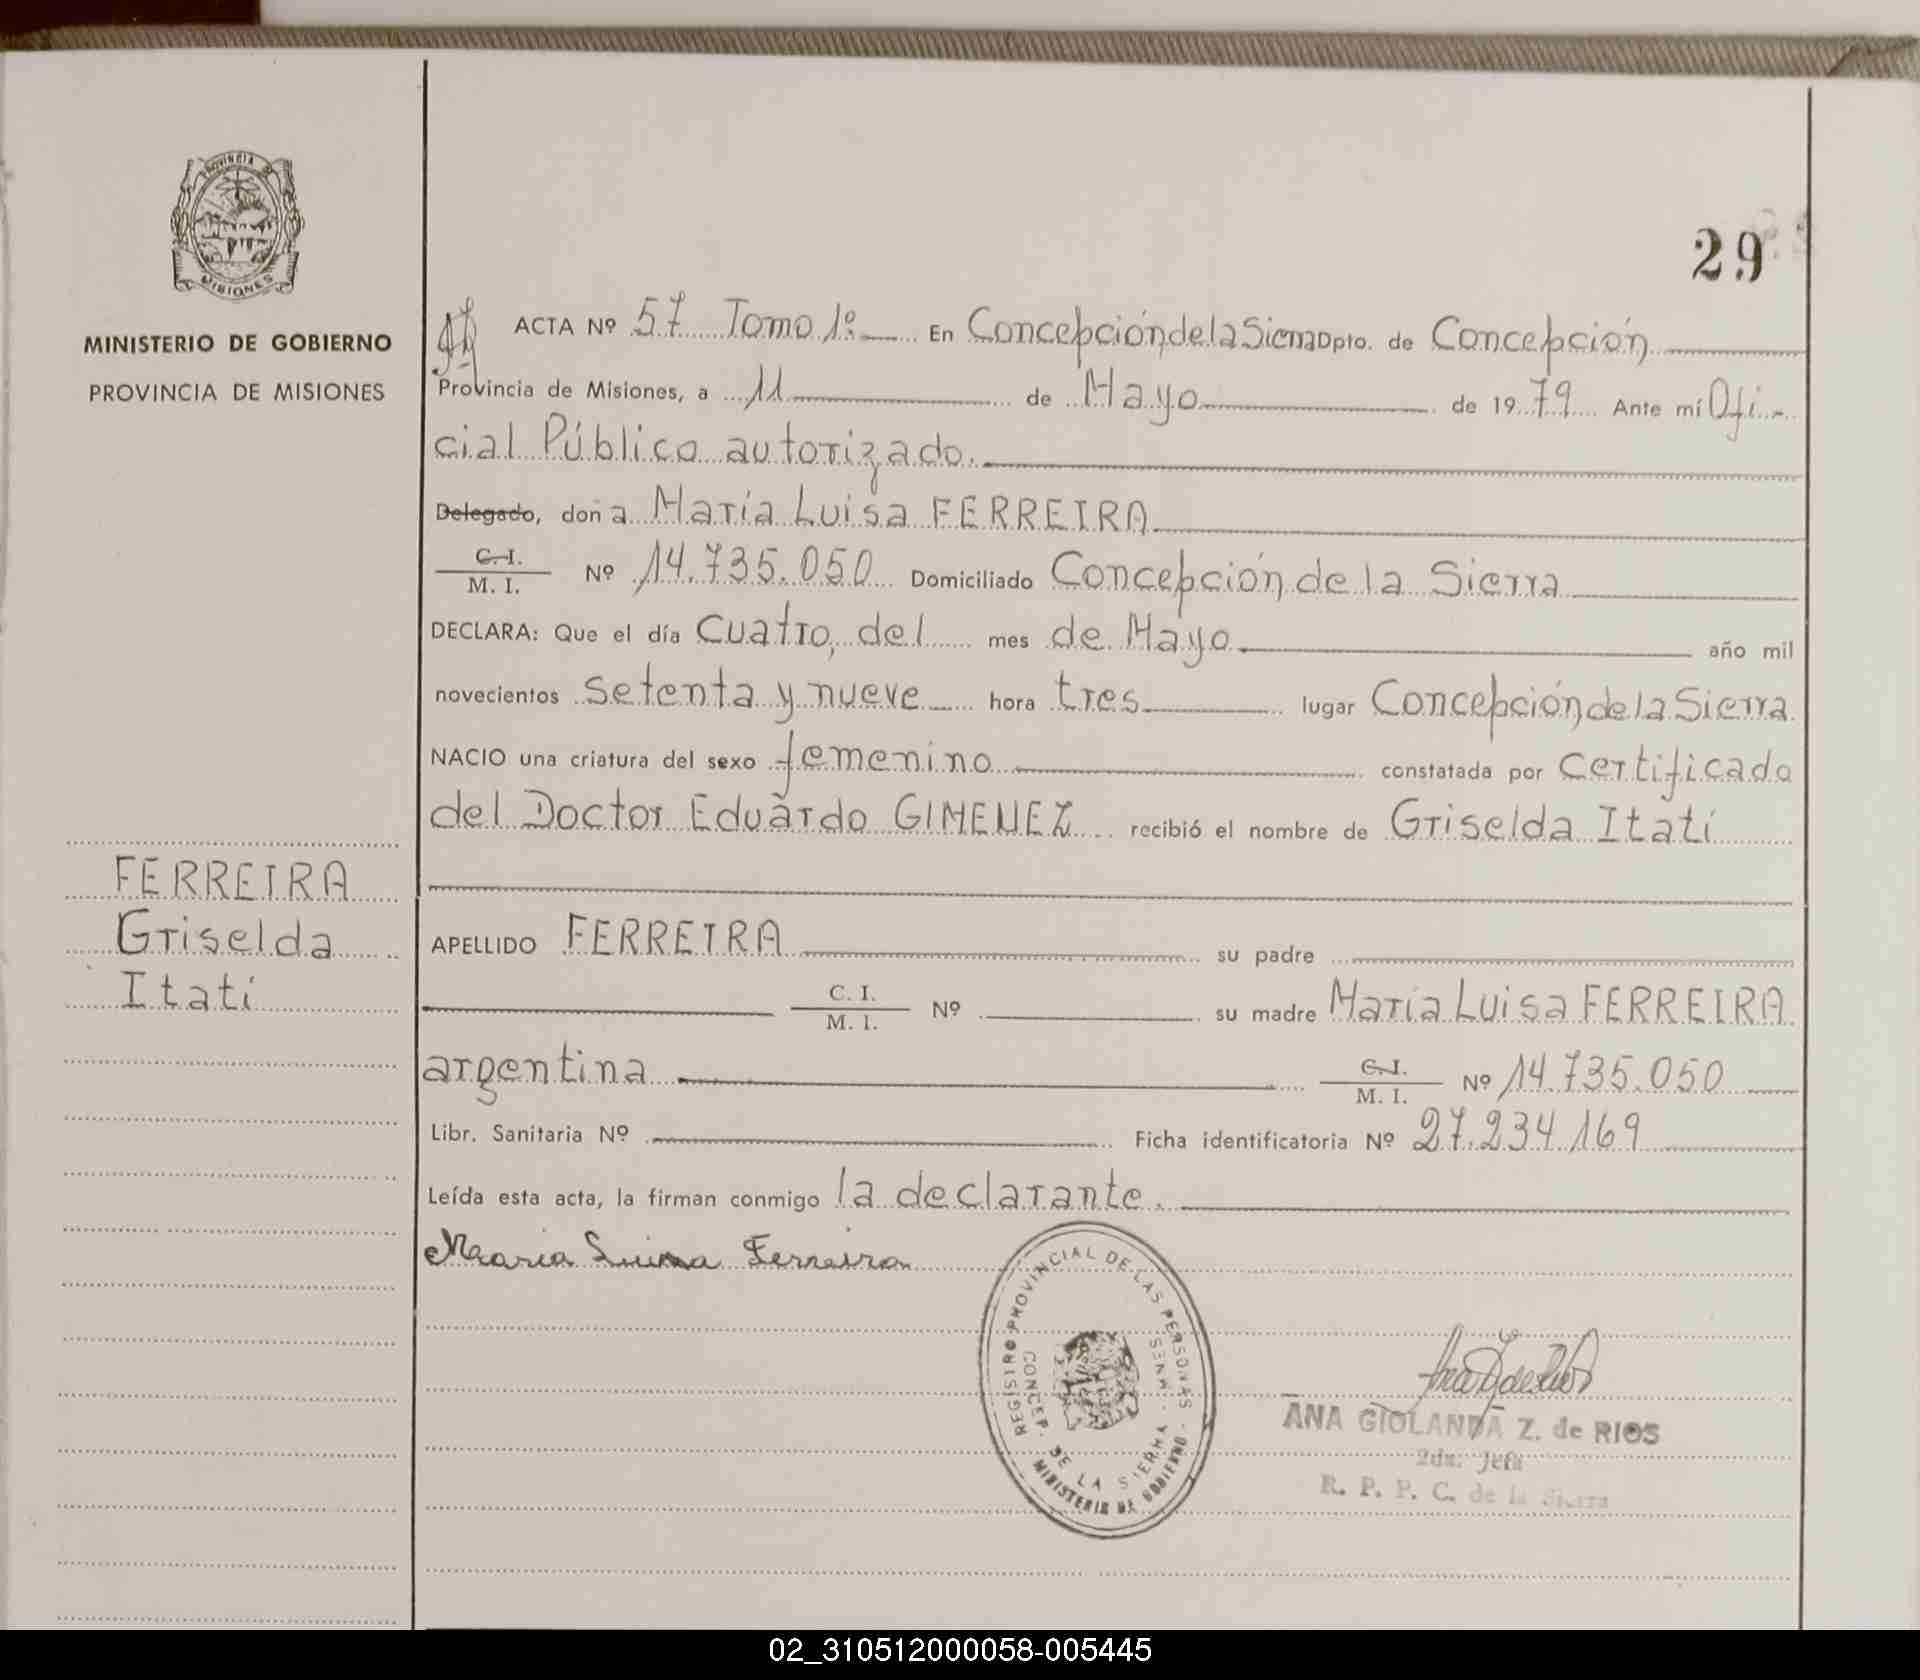 PROVINCIA DE
MISIONES
MINISTERIO DE GOBIERNO
PROVINCIA DE MISIONES
FERREIRA
Griselda
Itatí
29
ACTA Nº 57 Tomo 1º En Concepción de la Sierra Dpto. de Concepción
Provincia de Misiones, a 11 de Mayo de 1979 Ante mí Ofi-
cial Público autorizado.
Delegado, doña María Luisa FERREIRA
C. I.
M. I. Nº 14.735.050 Domiciliado Concepción de la Sierra
DECLARA: Que el día Cuatro, del mes de Mayo año mil
novecientos setenta y nueve hora tres lugar Concepción de la Sierra
NACIO una criatura del sexo femenino constatada por Certificado
del Doctor Eduardo GIMENEZ recibió el nombre de Griselda Itatí
APELLIDO FERREIRA su padre
C. I.
M. I. Nº su madre María Luisa FERREIRA
argentina C. I.
M. I. Nº 14.735.050
Libr. Sanitaria Nº Ficha identificatoria Nº 27.234.169
Leída esta acta, la firman conmigo la declarante.
Maria Luisa Ferreira
REGISTRO PROVINCIAL DE LAS PERSONAS
CONCEP. DE LA SIERRA
MINISTERIO DE GOBIERNO
ANA GIOLANDA Z. de RIOS
2da. Jefa
R. P. P. C. de la Sierra
02_310512000058-005445